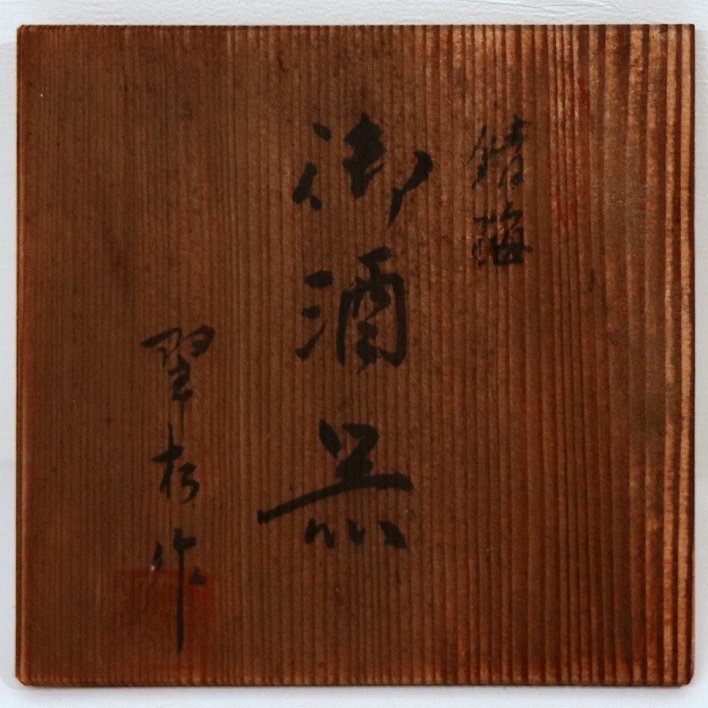 錆梅
御酒器
翠松作